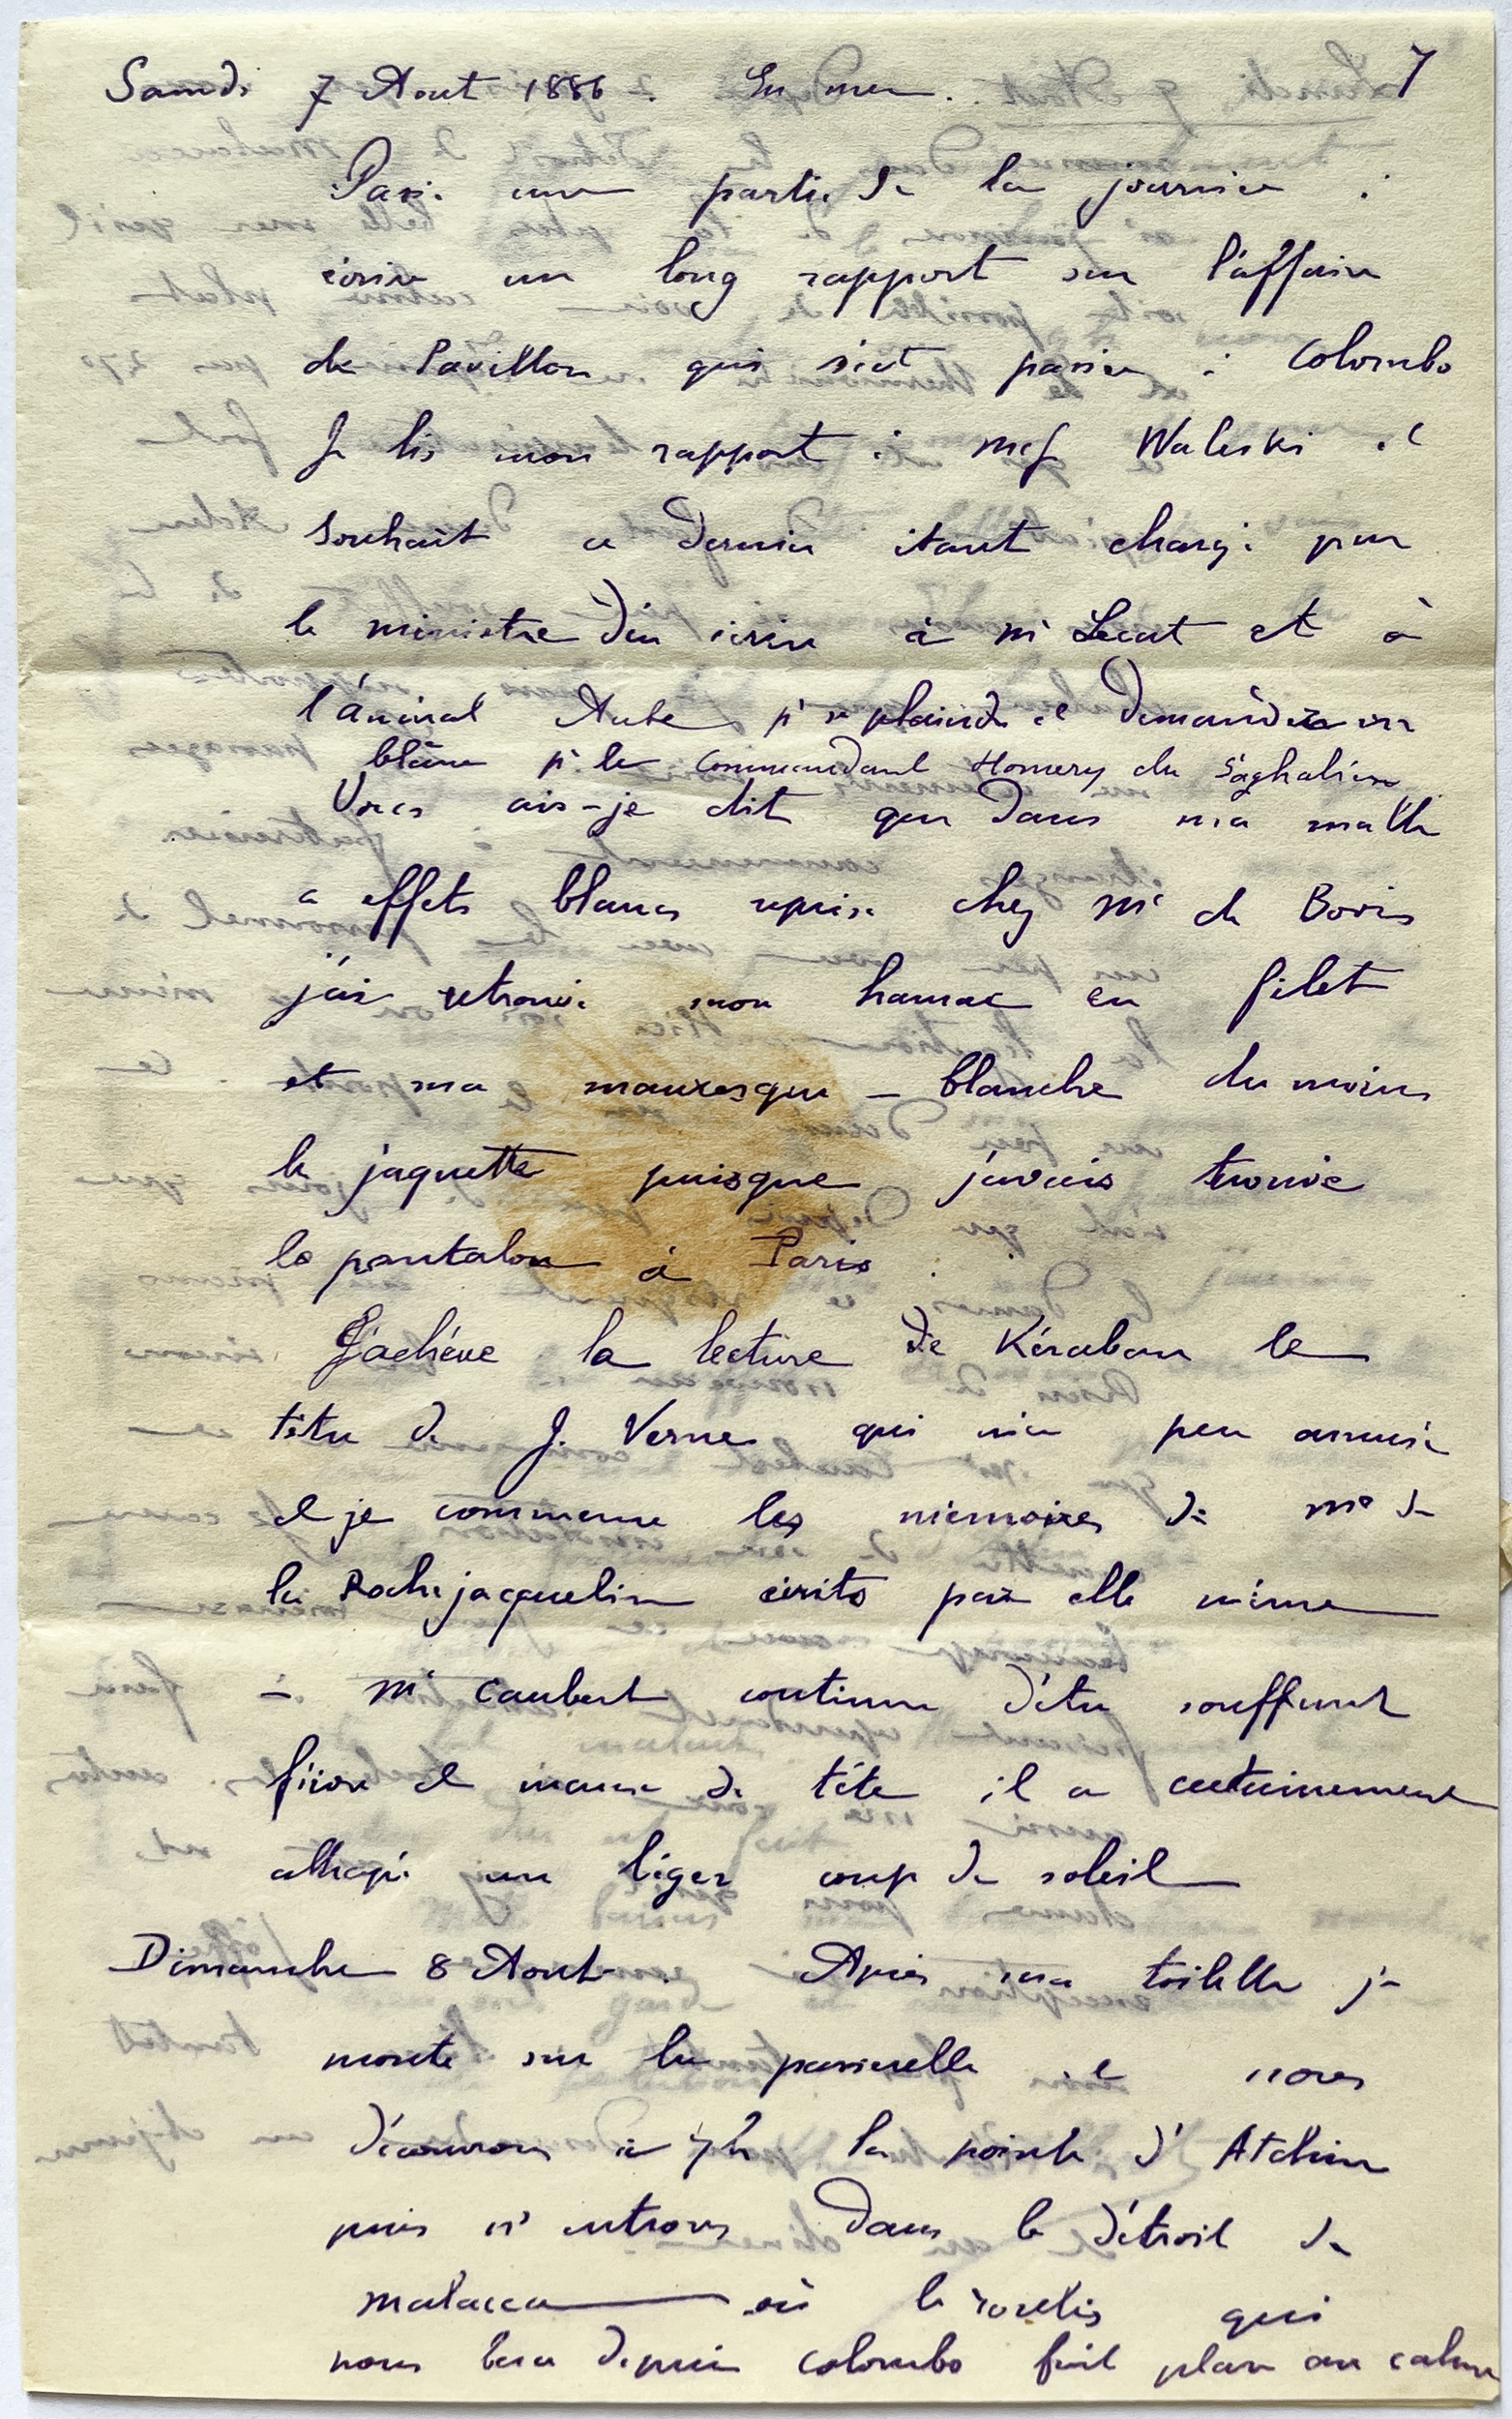 Samedi 7 Aout 1886. En mer. 7
Passé une partie de la journée à
écrire un long rapport sur l'affaire
de Pavillon qui s'est passée à Colombo
Je lis mon rapport à Waleski et
souhait ce dernier étant chargé par
le ministre d'en écrire à Mr Lecat et à
l'amiral Aube pr se plaindre et demander un
blâme pr le Commandant Homery du Saghalien
Vous ais-je dit que dans ma malle
a effets blancs reprise chez Mr de Bovis
j'ai retrouvé mon hamac en filet
et ma mauresque - blanche du moins
la jaquette puisque j'avais trouvé
le pantalon à Paris.
J'achève la lecture de Kéraban le
têtu de J. Verne qui m'a peu amusé
et je commence les mémoires de Me de
la Rochejacquelin écrits par elle même
- Mr Caubert continue d'être souffrant
fièvre et maux de tête il a certainement
attrapé un léger coup de soleil
Dimanche 8 Aout. Après ma toilette je
monte sur la passerelle et nous
découvrons à 7h la pointe d'Atchin
puis ns entrons dans le détroit de
Malacca où le roulis qui
nous berce depuis Colombo fait place au calme